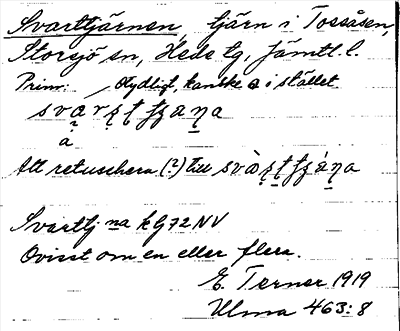 Svarttjärnen, tjärn i Tossåsen,
Storsjö sn, Heds tg, Jämtl. l.
Prim: otydligt, kanske a i stället
a
Att retuschera (?) till
Svarttj na kG72NV
Ovisst om en eller flera.
E. Terner 1919
Ulma 463:8